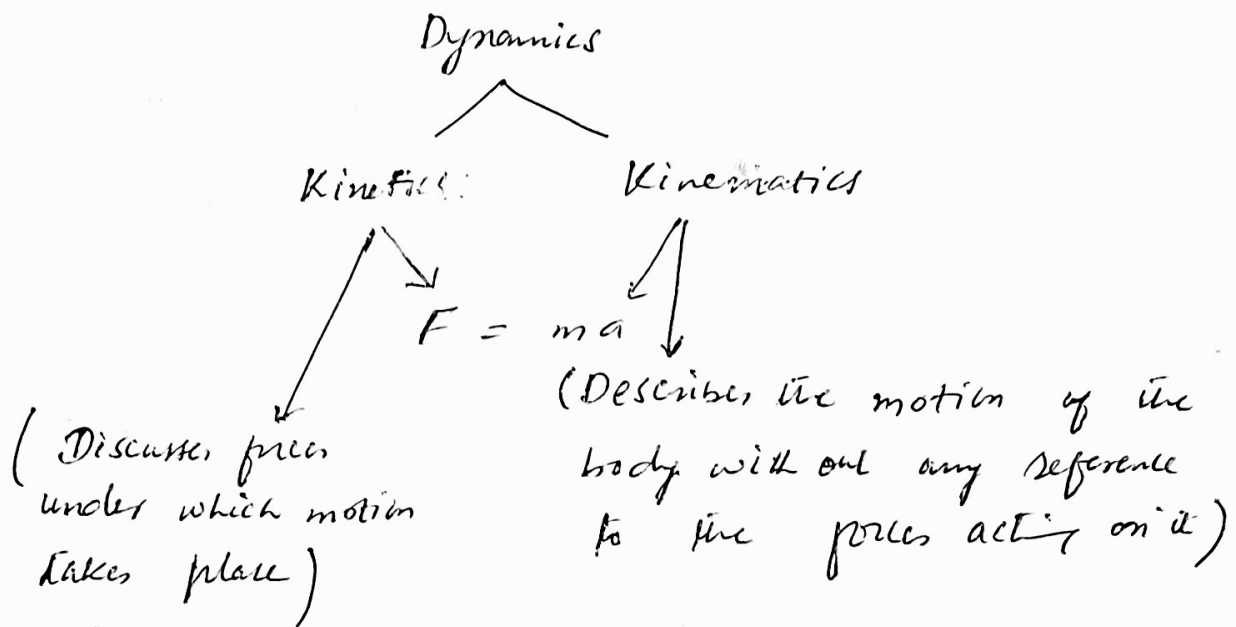 Dynamics
Kinetics: Kinematics
F = ma
(Discusses forces
under which motion
takes place)
(Describes the motion of the
body with out any reference
to the forces acting on it)